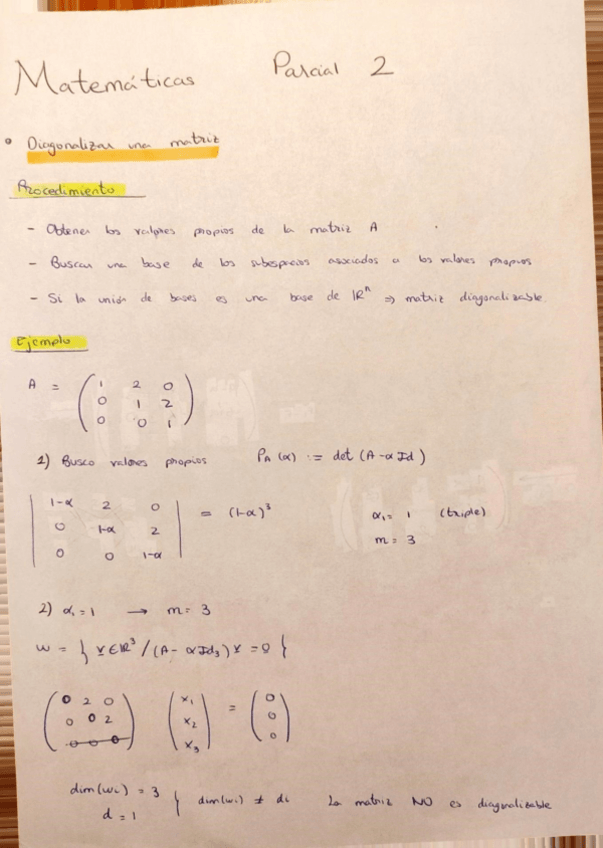 Matemáticas Parcial 2
• Diagonalizar una matriz
Procedimiento
- Obtener los valores propios de la matriz A
- Buscar una base de los subespacios asociados a los valores propios
- Si la unión de bases es una base de ℝⁿ ⇒ matriz diagonalizable
Ejemplo
A = ( 1 2 0
0 1 2
0 0 1 )
1) Busco valores propios P_A(α) := det (A - α Id)
| 1-α 2 0
0 1-α 2
0 0 1-α | = (1-α)³
α₁ = 1 (triple)
m = 3
2) α₁ = 1 → m = 3
W = { x ∈ ℝ³ / (A - αId₃) x = 0 }
( 0 2 0
0 0 2
0 0 0 ) ( x₁
x₂
x₃ ) = ( 0
0
0 )
dim(wᵢ) = 3
d = 1 } dim(wᵢ) ≠ dᵢ La matriz NO es diagonalizable